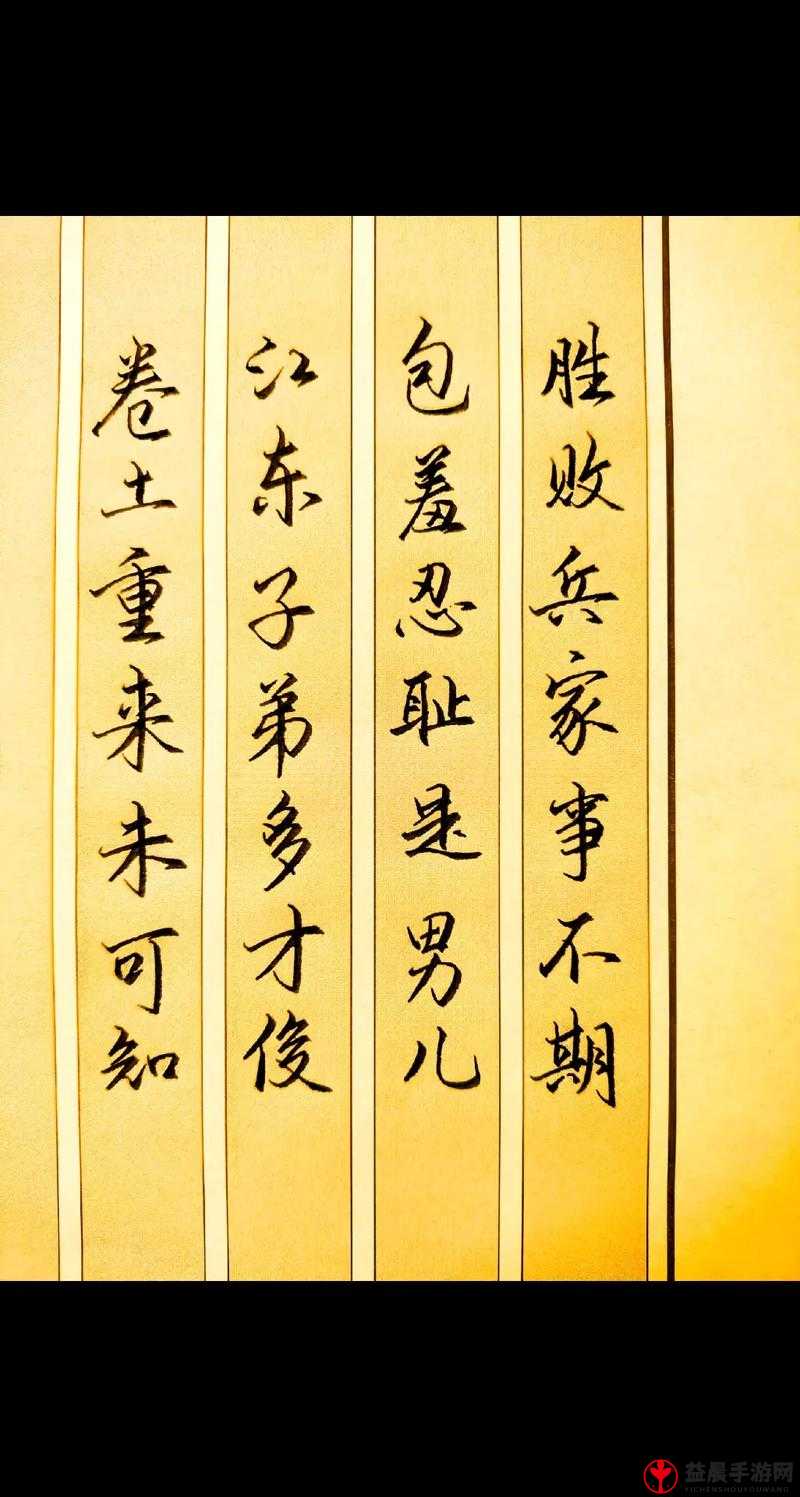 胜败兵家事不期
包羞忍耻是男儿
江东子弟多才俊
卷土重来未可知
益晨手游网
YICHENSHOUYOUWANG